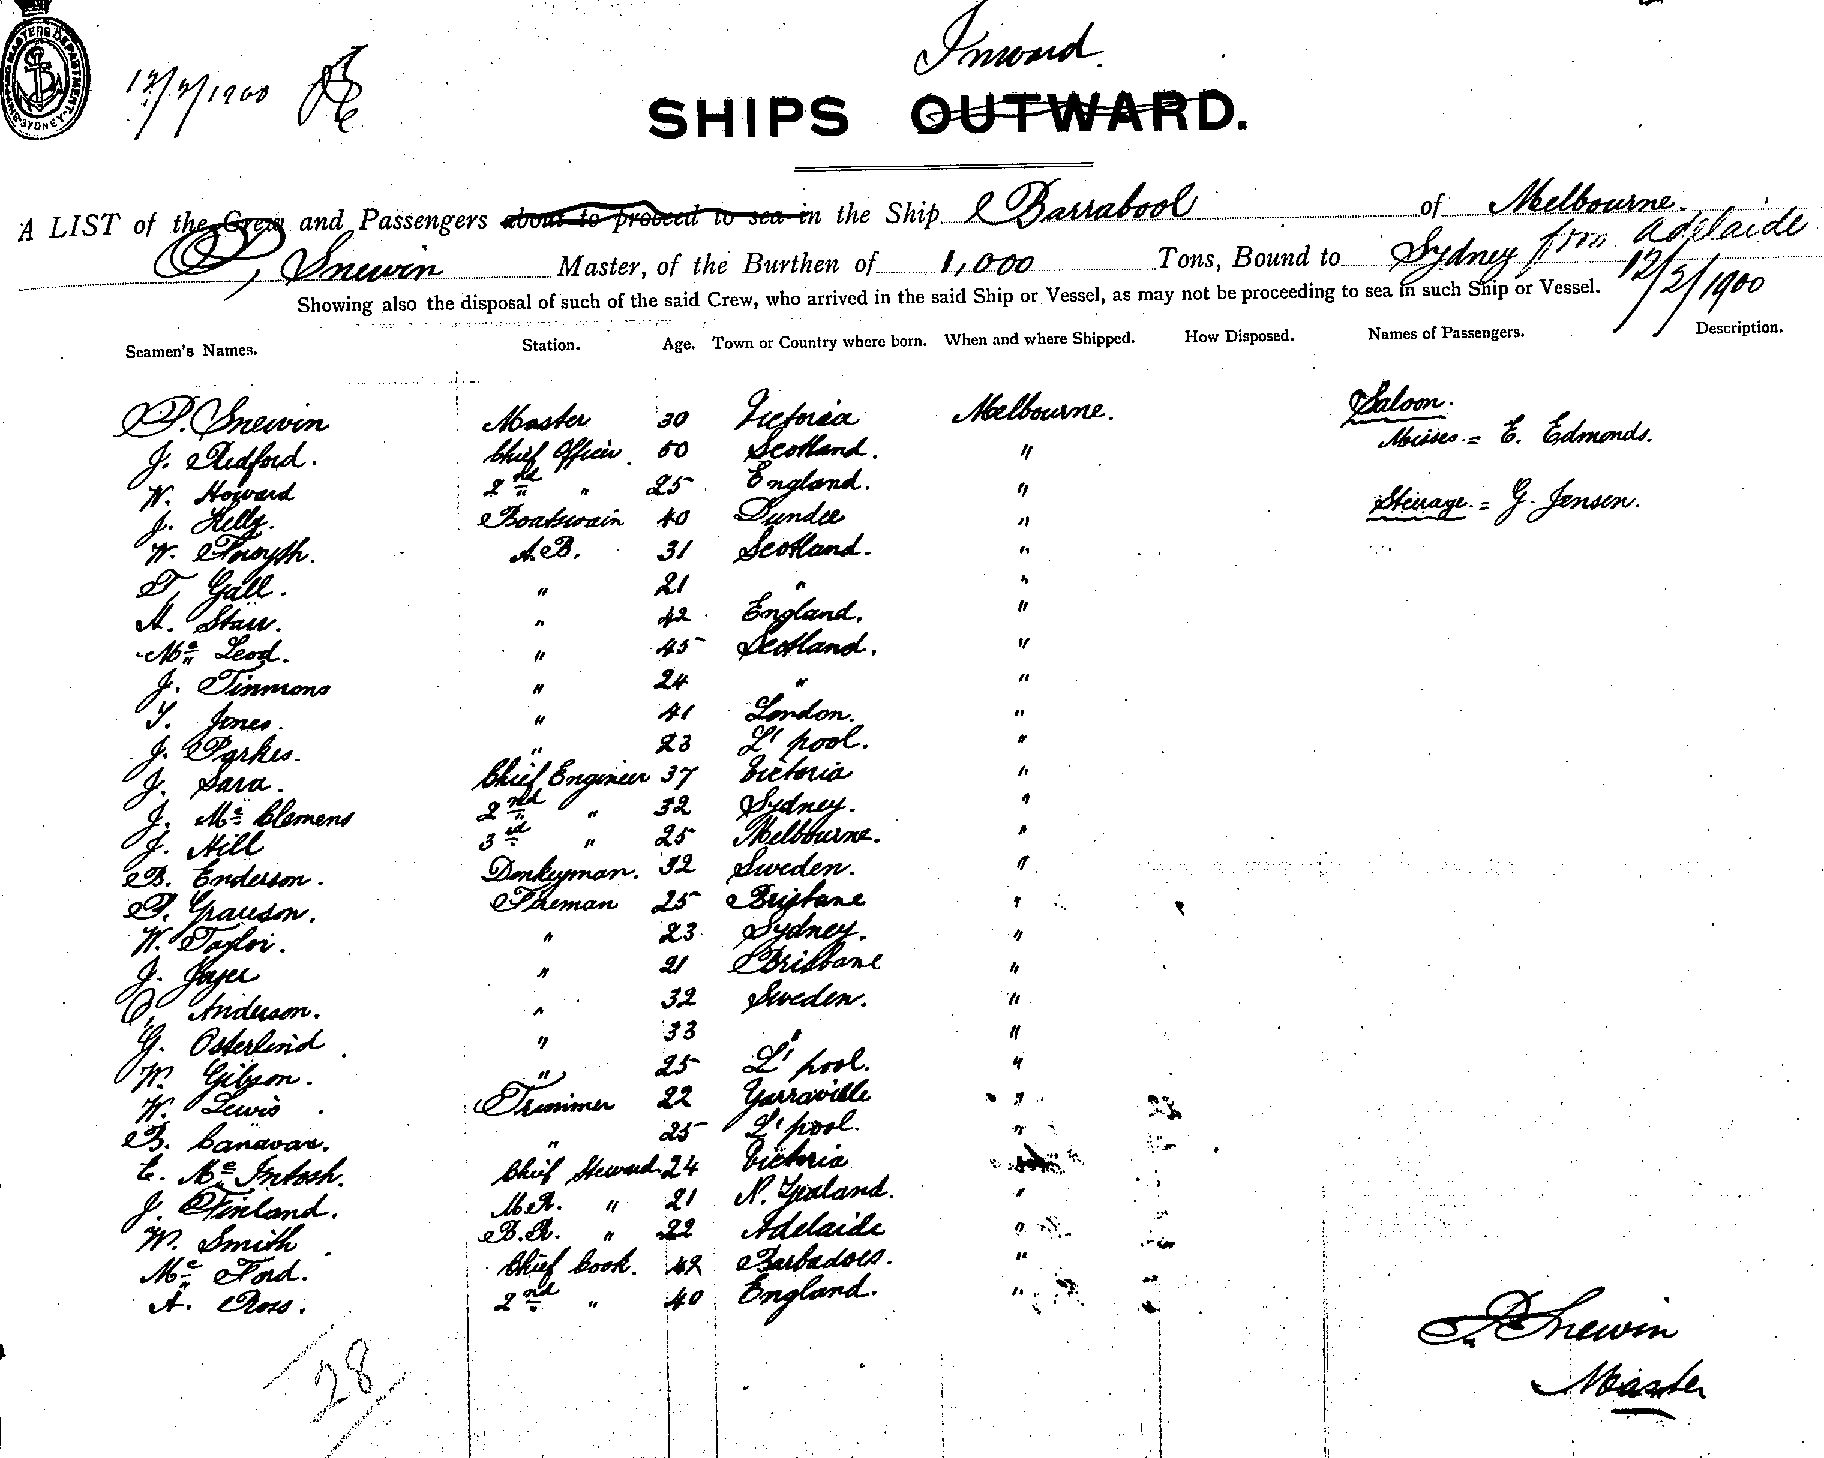 Inward.
12/2/1900
SHIPS OUTWARD.
A LIST of the Crew and Passengers about to proceed to sea in the Ship Barrabool of Melbourne.
P. Snewin Master, of the Burthen of 1,000 Tons, Bound to Sydney from Adelaide
12/2/1900
Showing also the disposal of such of the said Crew, who arrived in the said Ship or Vessel, as may not be proceeding to sea in such Ship or Vessel.
Seamen's Names. Station. Age. Town or Country where born. When and where Shipped. How Disposed. Names of Passengers. Description.
P. Snewin Master 30 Victoria Melbourne. Saloon.
J. Redford. Chief Officer. 50 Scotland. " Misses = E. Edmonds.
W. Howard 2nd " 25 England. "
J. Kelly. Boatswain 40 Dundee " Steerage = G. Jensen.
W. Forsyth. A.B. 31 Scotland. "
T. Gall. " 21 " "
A. Starr. " 42 England. "
Mc Leod. " 45 Scotland. "
J. Timmons " 24 " "
T. Jones. " 41 London. "
J. Parkes. " 23 L'pool. "
J. Sara. Chief Engineer 37 Victoria "
J. Mc Clemens 2nd " 32 Sydney. "
J. Hill 3rd " 25 Melbourne. "
B. Enderson. Donkeyman. 32 Sweden. "
P. Grauson. Fireman 25 Brisbane "
W. Taylor. " 23 Sydney. "
J. " 21 Brisbane "
O. Anderson. " 32 Sweden. "
G. Osterlind " 33 " "
W. Gibson. " 25 L'pool. "
W. Lewis Trimmer 22 Yarraville "
B. Canavan. " 25 L'pool. "
E. Mc Intosh. Chief Steward 24 Victoria "
J. Finland. M.R. " 21 N. Zealand. "
W. Smith B.R. " 22 Adelaide "
Mc Ford. Chief Cook. 42 Barbadoes. "
A. Ross. 2nd " 40 England. "
28
P. Snewin
Master